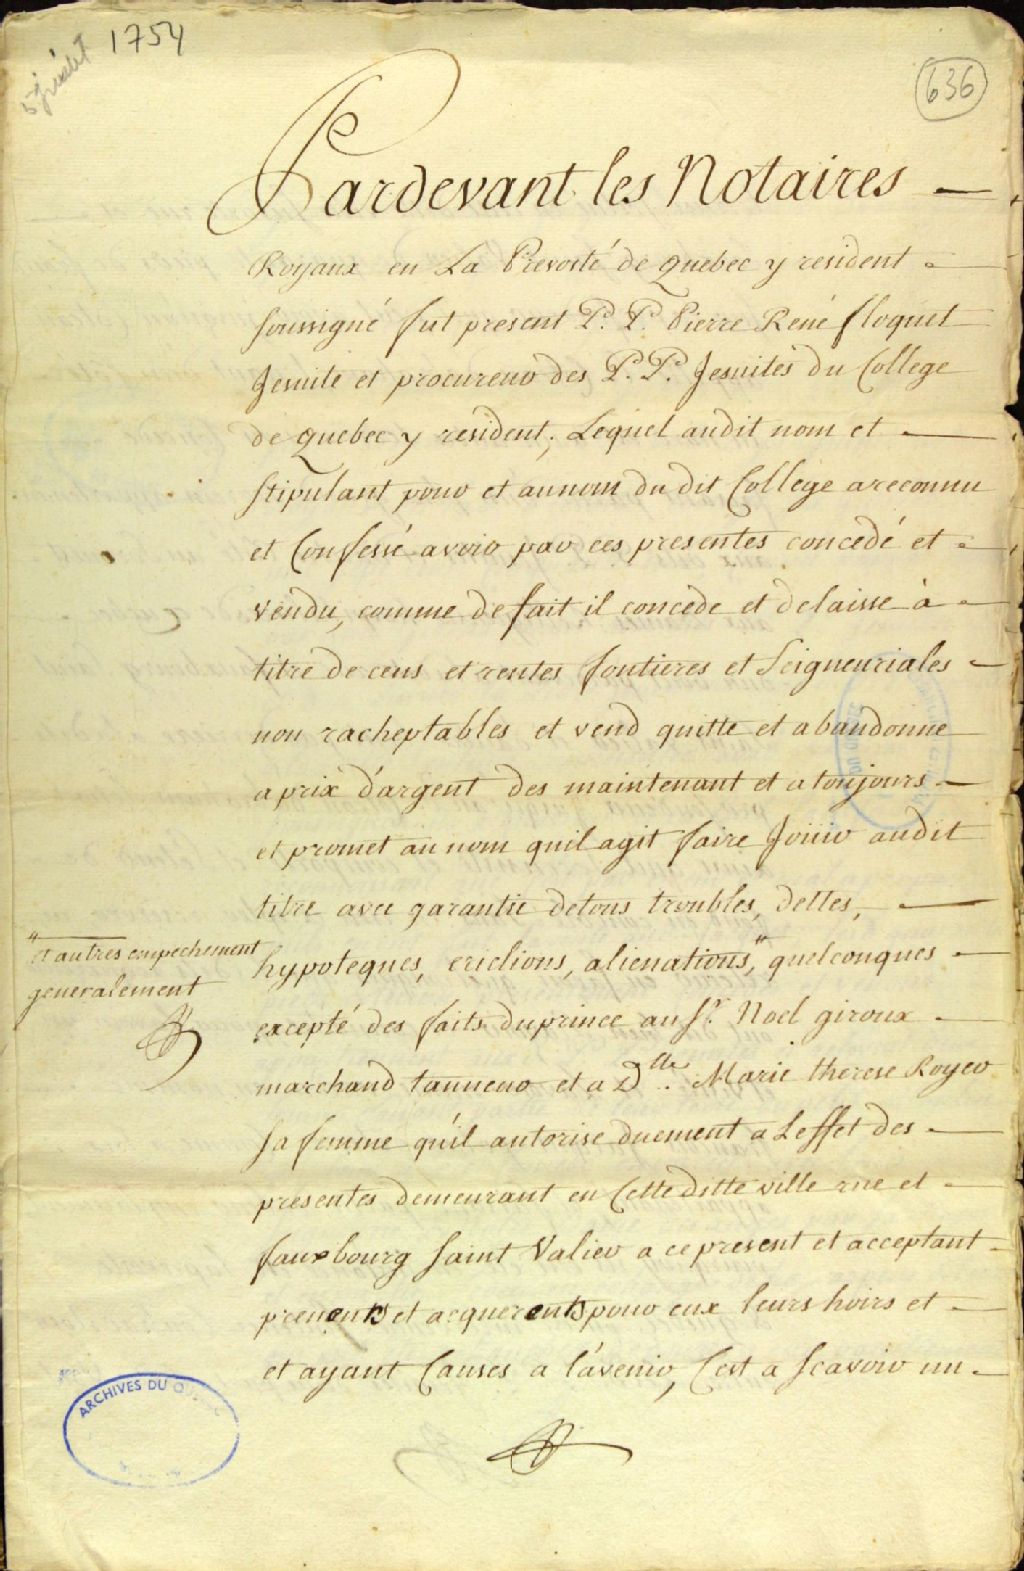 5 juillet 1754
636
Pardevant les Notaires
Royaux en La Prevosté de Quebec y resident
soussigné fut present P. P. Pierre René floquet
Jesuite et procureur des P. P. Jesuites du College
de Quebec y resident, Lequel audit nom et
stipulant pour et au nom du dit College a reconnu
et Confessé avoir par ces presentes concedé et
vendu, comme de fait il concede et delaisse à
titre de cens et rentes fontieres et Seigneuriales
non racheptables et vend quitte et abandonne
a prix d'argent des maintenant et a toujours
et promet au nom quil agit faire Joüir audit
titre avec garantie de tous troubles, dettes,
hypoteques, evictions, alienations," quelconques
" et autres empechement
generalement
excepté des faits du prince au Sr. Noel giroux
marchand tanneur et a Dlle. Marie therese Royer
sa femme qu'il autorise duement a Leffet des
presentes demeurant en Cette ditte ville rue et
faux bourg Saint Valier a ce present et acceptant
prenents et acquerents pour eux leurs hoirs et
et ayant Causes a l'avenir, C'est a scavoir un
ARCHIVES DU QUÉBEC